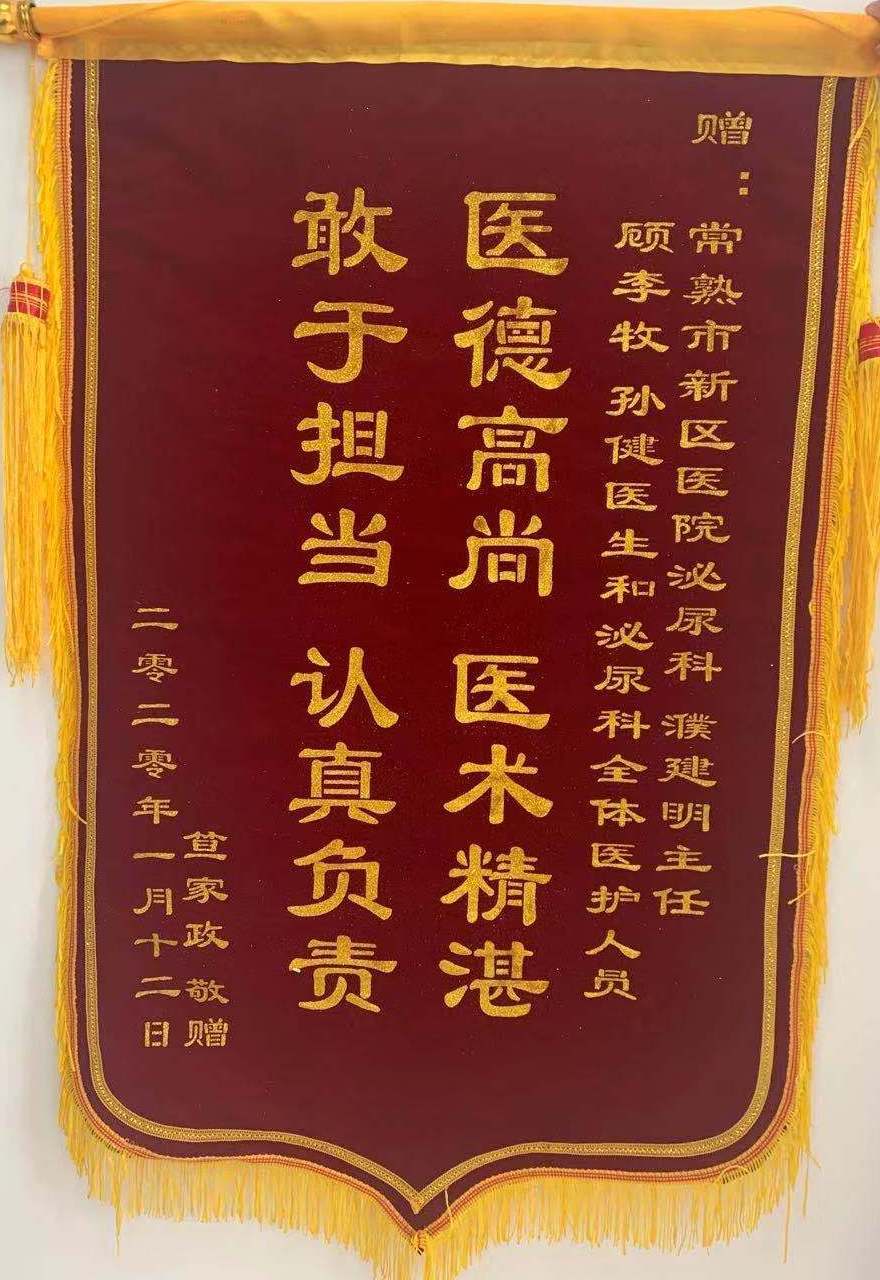 赠：
常熟市新区医院泌尿科 濮建明主任
顾李牧 孙健医生和泌尿科全体医护人员
医德高尚 医术精湛
敢于担当 认真负责
笪家政 敬赠
二零二零年一月十二日